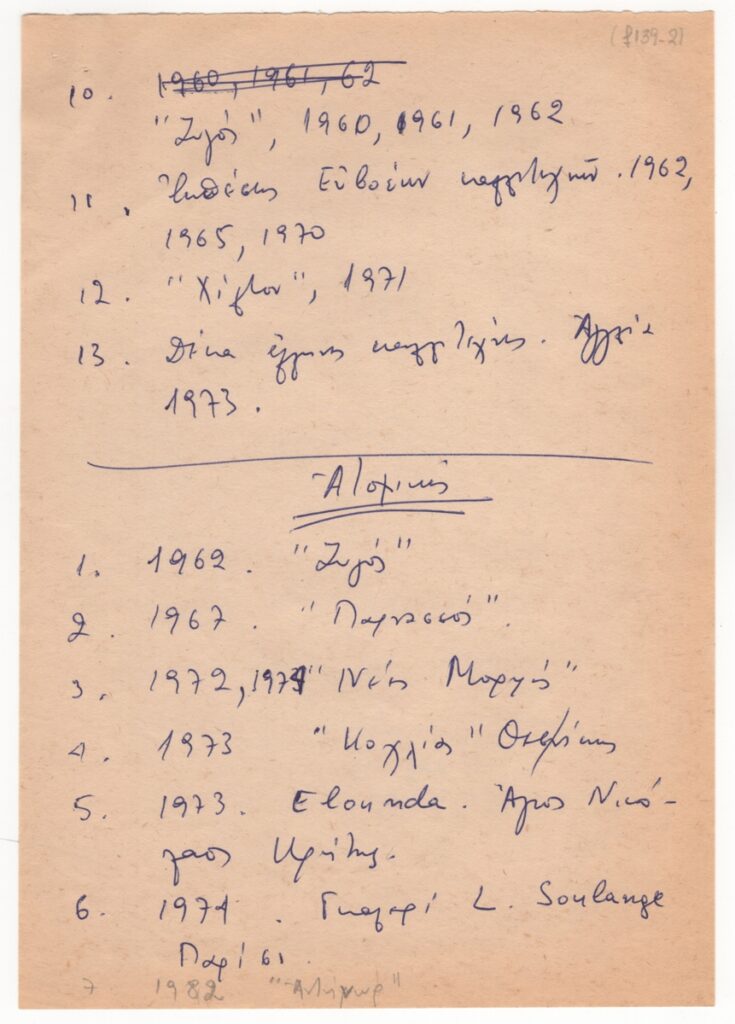 (f139-2)
10. 1960, 1961, 62
"Ζυγός", 1960, 1961, 1962
11. Ἐκθέσεις Εὐβοέων καλλιτεχνῶν. 1962,
1965, 1970
12. "Χίλτον", 1971
13. Δέκα ἕλληνες καλλιτέχνες. Ἀγγλία
1973.
Ἀτομικές
1. 1962. "Ζυγός"
2. 1967. "Παρνασσός".
3. 1972, 1974 "Νέες Μορφές"
4. 1973 "Κοχλίας" Θεσ/νίκης
5. 1973. Elounda. Ἅγιος Νικό-
λαος Κρήτης.
6. 1974. Γκαλερί L. Soulange
Παρίσι
7 1982 "Ἀντήνωρ"